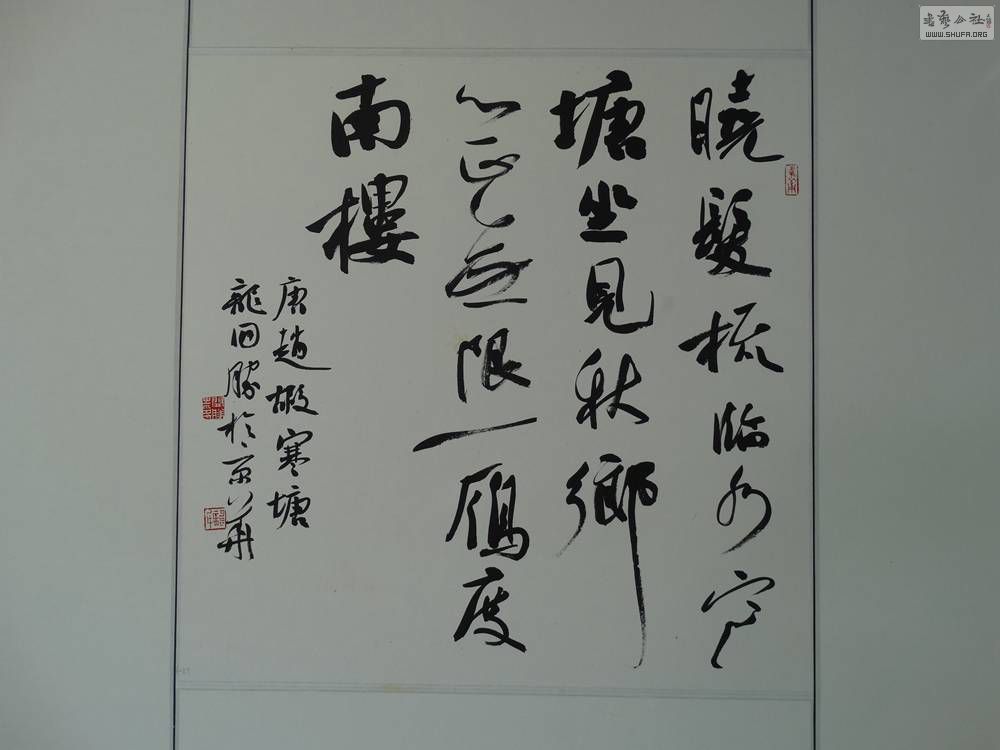 曉髮梳臨水寒
塘坐見秋鄉
心正無限一鴈度
南樓
唐趙嘏寒塘
龍開勝於京華
書藝公社
WWW.SHUFA.ORG